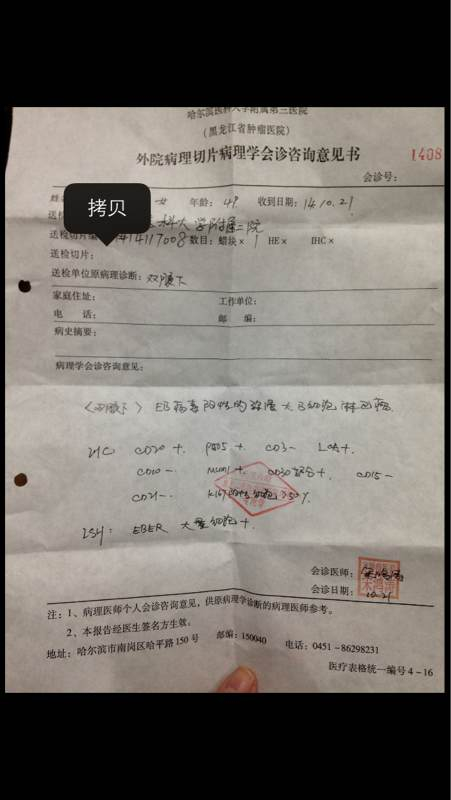 哈尔滨医科大学附属第三医院
(黑龙江省肿瘤医院)
外院病理切片病理学会诊咨询意见书
1408
会诊号:
拷贝
女 年龄: 49 收到日期: 14.10.21
科大学附属二院
送检切片 14117008 数目: 蜡块× 1 HE× IHC×
送检切片:
送检单位原病理诊断: 双腋下
家庭住址: 工作单位:
电 话: 邮 编:
病史摘要:
病理学会诊咨询意见:
EB病毒阳性的弥漫大B细胞淋巴瘤
IHC: CD20+. PAX5+. CD3-. LCA+.
CD10-. MUM1+. CD30部分+. CD15-
CD21-. Ki67阳性细胞>50%
ISH: EBER 大量细胞+.
会诊医师:
会诊日期: 10.21
注: 1、病理医师个人会诊咨询意见,供原病理学诊断的病理医师参考。
2、本报告经医生签名方生效。
地址: 哈尔滨市南岗区哈平路150号 邮编: 150040 电话: 0451-86298231
医疗表格统一编号4-16